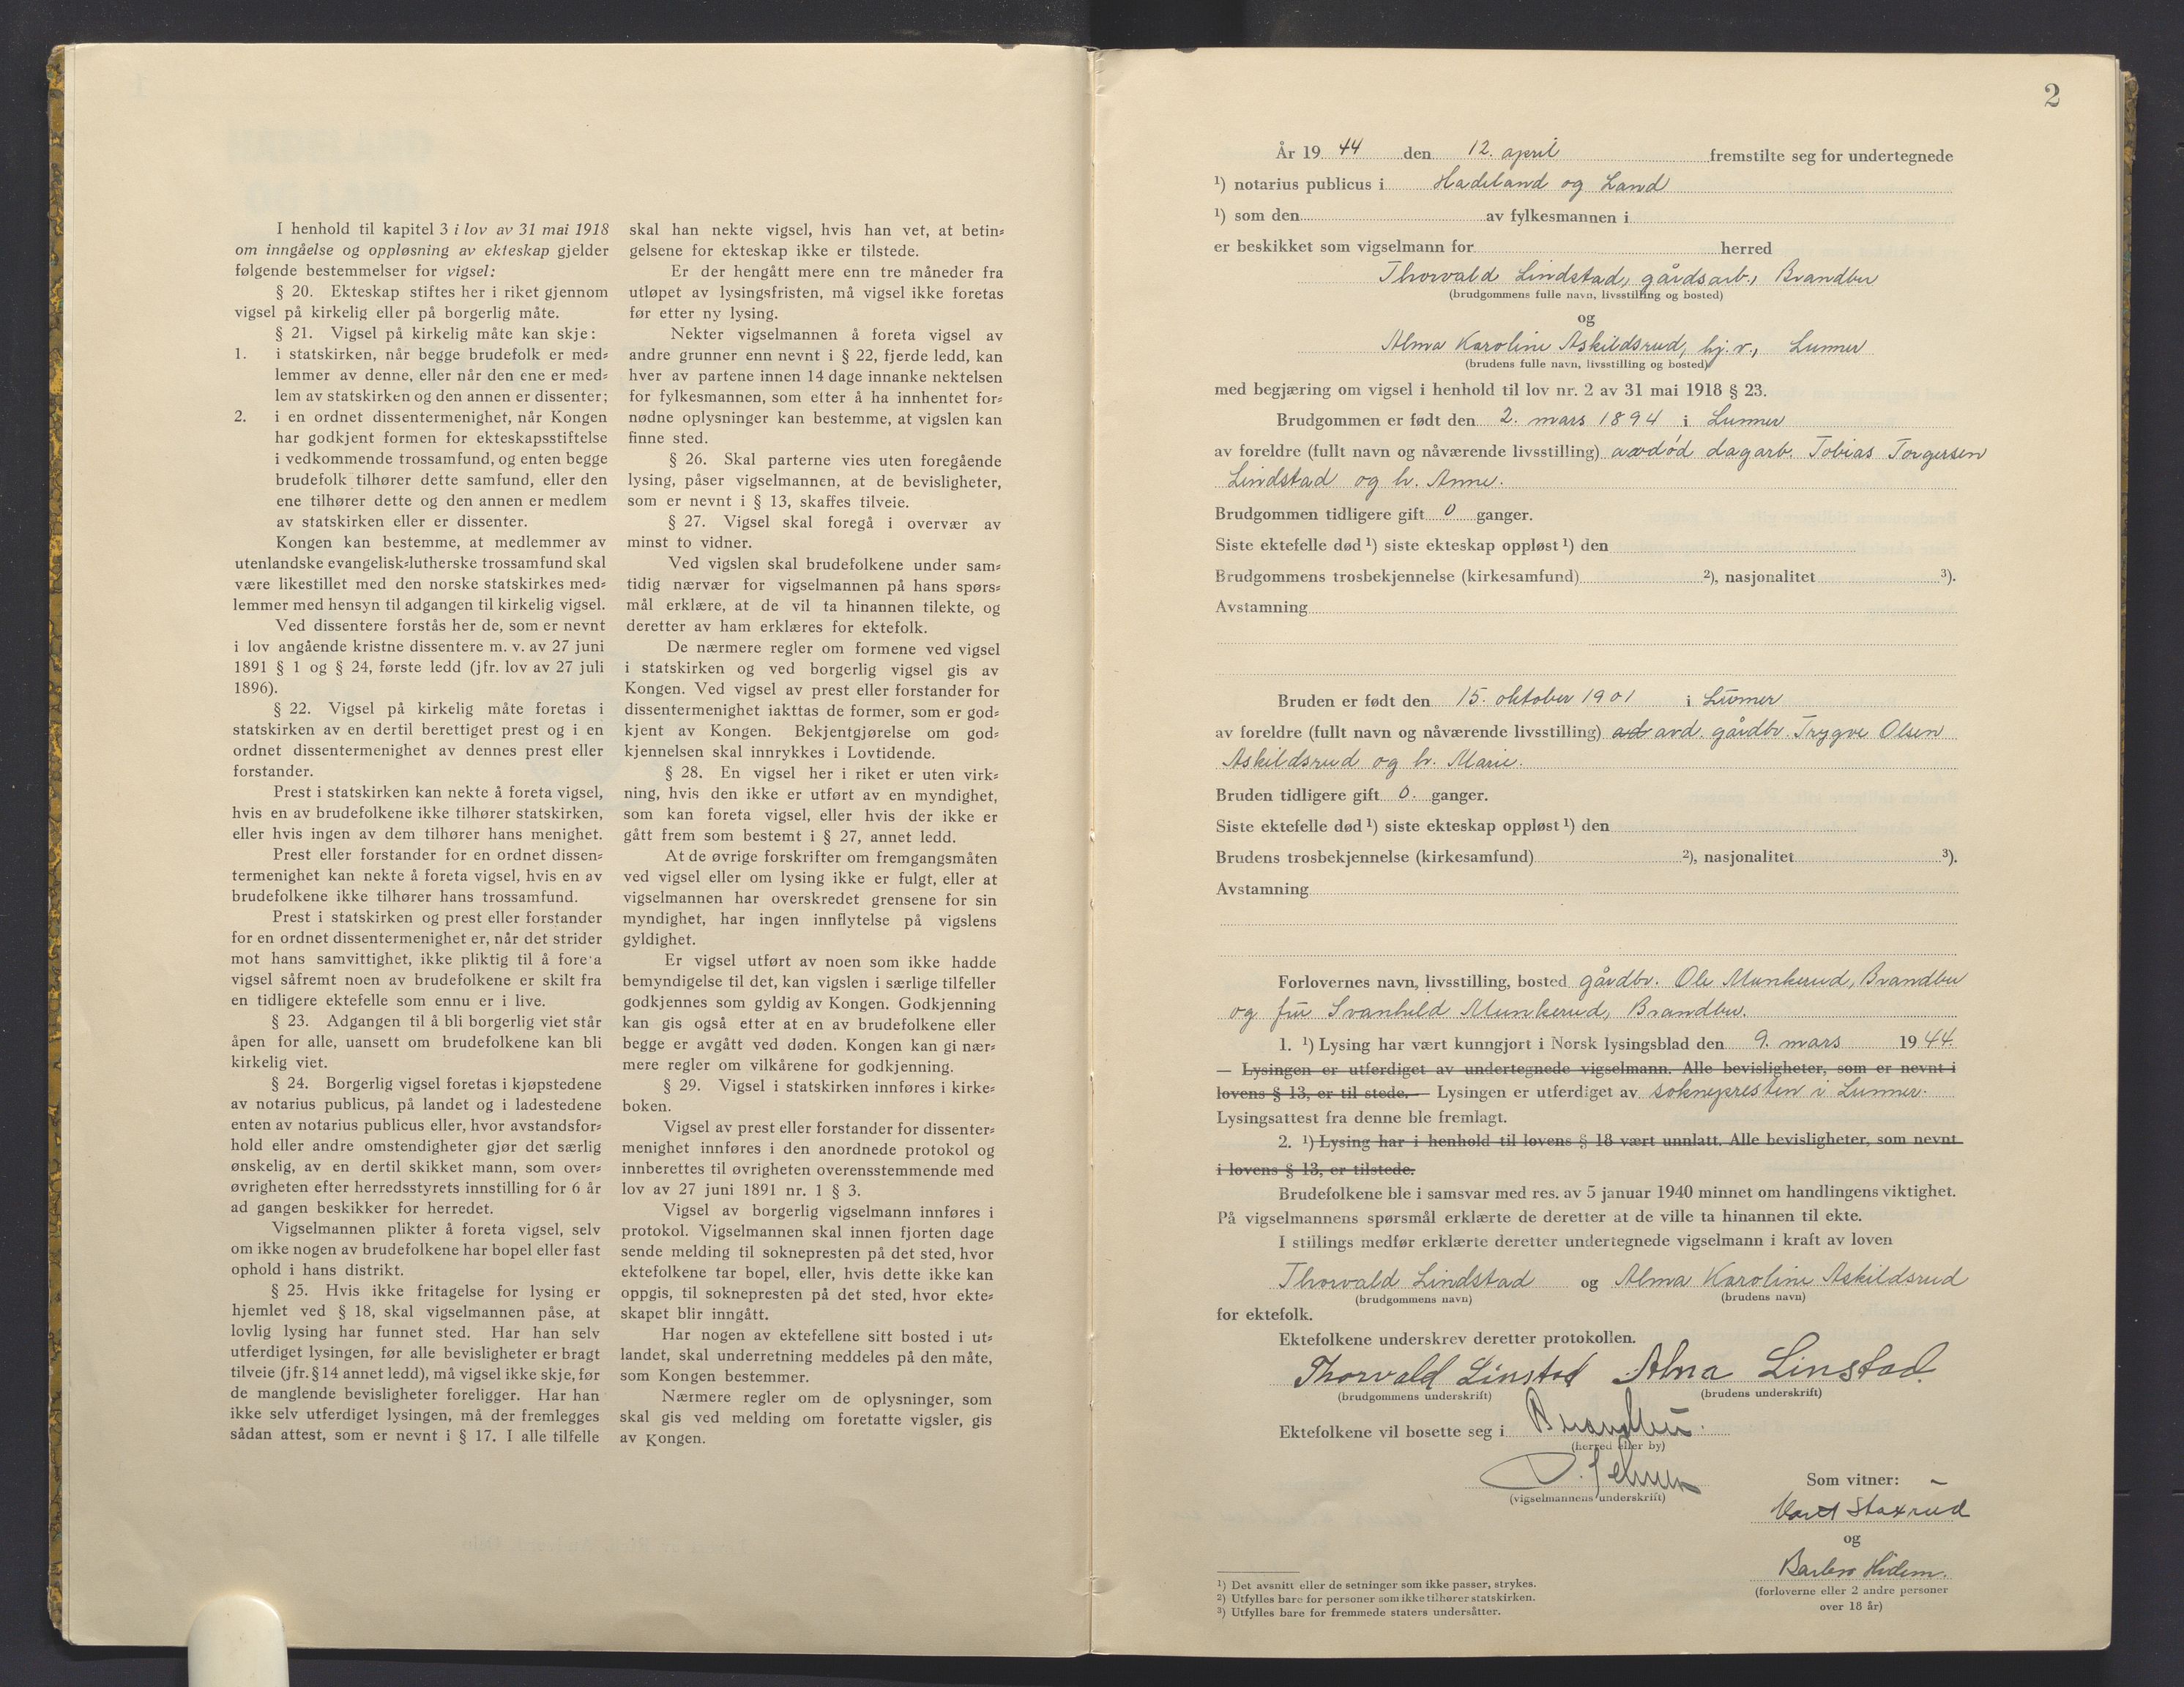 I henhold til kapitel 3 i lov av 31 mai 1918
om inngåelse og oppløsning av ekteskap gjelder
følgende bestemmelser for vigsel:
§ 20. Ekteskap stiftes her i riket gjennom
vigsel på kirkelig eller på borgerlig måte.
§ 21. Vigsel på kirkelig måte kan skje:
1. i statskirken, når begge brudefolk er med=
lemmer av denne, eller når den ene er med=
lem av statskirken og den annen er dissenter;
2. i en ordnet dissentermenighet, når Kongen
har godkjent formen for ekteskapsstiftelse
i vedkommende trossamfund, og enten begge
brudefolk tilhører dette samfund, eller den
ene tilhører dette og den annen er medlem
av statskirken eller er dissenter.
Kongen kan bestemme, at medlemmer av
utenlandske evangelisk=lutherske trossamfund skal
være likestillet med den norske statskirkes med=
lemmer med hensyn til adgangen til kirkelig vigsel.
Ved dissentere forstås her de, som er nevnt
i lov angående kristne dissentere m. v. av 27 juni
1891 § 1 og § 24, første ledd (jfr. lov av 27 juli
1896).
§ 22. Vigsel på kirkelig måte foretas i
statskirken av en dertil berettiget prest og i en
ordnet dissentermenighet av dennes prest eller
forstander.
Prest i statskirken kan nekte å foreta vigsel,
hvis en av brudefolkene ikke tilhører statskirken,
eller hvis ingen av dem tilhører hans menighet.
Prest eller forstander for en ordnet dissen=
termenighet kan nekte å foreta vigsel, hvis en av
brudefolkene ikke tilhører hans trossamfund.
Prest i statskirken og prest eller forstander
for en ordnet dissentermenighet er, når det strider
mot hans samvittighet, ikke pliktig til å foreta
vigsel såfremt noen av brudefolkene er skilt fra
en tidligere ektefelle som ennu er i live.
§ 23. Adgangen til å bli borgerlig viet står
åpen for alle, uansett om brudefolkene kan bli
kirkelig viet.
§ 24. Borgerlig vigsel foretas i kjøpstedene
av notarius publicus, på landet og i ladestedene
enten av notarius publicus eller, hvor avstandsfor=
hold eller andre omstendigheter gjør det særlig
ønskelig, av en dertil skikket mann, som over=
øvrigheten efter herredsstyrets innstilling for 6 år
ad gangen beskikker for herredet.
Vigselmannen plikter å foreta vigsel, selv
om ikke nogen av brudefolkene har bopel eller fast
ophold i hans distrikt.
§ 25. Hvis ikke fritagelse for lysing er
hjemlet ved § 18, skal vigselmannen påse, at
lovlig lysing har funnet sted. Har han selv
utferdiget lysingen, før alle bevisligheter er bragt
tilveie (jfr. § 14 annet ledd), må vigsel ikke skje, før
de manglende bevisligheter foreligger. Har han
ikke selv utferdiget lysingen, må der fremlegges
sådan attest, som er nevnt i § 17. I alle tilfelle
skal han nekte vigsel, hvis han vet, at betin=
gelsene for ekteskap ikke er tilstede.
Er der hengått mere enn tre måneder fra
utløpet av lysingsfristen, må vigsel ikke foretas
før etter ny lysing.
Nekter vigselmannen å foreta vigsel av
andre grunner enn nevnt i § 22, fjerde ledd, kan
hver av partene innen 14 dage innanke nektelsen
for fylkesmannen, som etter å ha innhentet for=
nødne oplysninger kan bestemme, at vigslen kan
finne sted.
§ 26. Skal parterne vies uten foregående
lysing, påser vigselmannen, at de bevisligheter,
som er nevnt i § 13, skaffes tilveie.
§ 27. Vigsel skal foregå i overvær av
minst to vidner.
Ved vigslen skal brudefolkene under sam=
tidig nærvær for vigselmannen på hans spørs=
mål erklære, at de vil ta hinannen tilekte, og
deretter av ham erklæres for ektefolk.
De nærmere regler om formene ved vigsel
i statskirken og ved borgerlig vigsel gis av
Kongen. Ved vigsel av prest eller forstander for
dissentermenighet iakttas de former, som er god=
kjent av Kongen. Bekjentgjørelse om god=
kjennelsen skal innrykkes i Lovtidende.
§ 28. En vigsel her i riket er uten virk=
ning, hvis den ikke er utført av en myndighet,
som kan foreta vigsel, eller hvis der ikke er
gått frem som bestemt i § 27, annet ledd.
At de øvrige forskrifter om fremgangsmåten
ved vigsel eller om lysing ikke er fulgt, eller at
vigselmannen har overskredet grensene for sin
myndighet, har ingen innflytelse på vigslens
gyldighet.
Er vigsel utført av noen som ikke hadde
bemyndigelse til det, kan vigslen i særlige tilfeller
godkjennes som gyldig av Kongen. Godkjenning
kan gis også etter at en av brudefolkene eller
begge er avgått ved døden. Kongen kan gi nær=
mere regler om vilkårene for godkjenning.
§ 29. Vigsel i statskirken innføres i kirke=
boken.
Vigsel av prest eller forstander for dissenter=
menighet innføres i den anordnede protokol og
innberettes til øvrigheten overensstemmende med
lov av 27 juni 1891 nr. 1 § 3.
Vigsel av borgerlig vigselmann innføres i
protokol. Vigselmannen skal innen fjorten dage
sende melding til soknepresten på det sted, hvor
ektefolkene tar bopel, eller, hvis dette ikke kan
oppgis, til soknepresten på det sted, hvor ekte=
skapet blir inngått.
Har nogen av ektefellene sitt bosted i ut=
landet, skal underretning meddeles på den måte,
som Kongen bestemmer.
Nærmere regler om de oplysninger, som
skal gis ved melding om foretatte vigsler, gis
av Kongen.
2
År 19 44 den 12. april fremstilte seg for undertegnede
¹) notarius publicus i Hadeland og Land
¹) som den av fylkesmannen i
er beskikket som vigselmann for herred
Thorvald Lindstad, gårdsarb., Brandbu
(brudgommens fulle navn, livsstilling og bosted)
og
Alma Karoline Askildsrud, hj.v., Lunner
(brudens fulle navn, livsstilling og bosted)
med begjæring om vigsel i henhold til lov nr. 2 av 31 mai 1918 § 23.
Brudgommen er født den 2. mars 1894 i Lunner
av foreldre (fullt navn og nåværende livsstilling) avdød dagarb. Tobias Torgersen
Lindstad og h. Anne.
Brudgommen tidligere gift 0 ganger.
Siste ektefelle død ¹) siste ekteskap oppløst ¹) den
Brudgommens trosbekjennelse (kirkesamfund) ²), nasjonalitet ³).
Avstamning
Bruden er født den 15. oktober 1901 i Lunner
av foreldre (fullt navn og nåværende livsstilling) ad avd. gårdbr. Trygve Olsen
Askildsrud og h. Marie.
Bruden tidligere gift 0. ganger.
Siste ektefelle død ¹) siste ekteskap oppløst ¹) den
Brudens trosbekjennelse (kirkesamfund) ²), nasjonalitet ³).
Avstamning
Forlovernes navn, livsstilling, bosted gårdbr. Ole Munkerud, Brandbu
og fru Svanhild Munkerud, Brandbu.
1. ¹) Lysing har vært kunngjort i Norsk lysingsblad den 9. mars 19 44.
— Lysingen er utferdiget av undertegnede vigselmann. Alle bevisligheter, som er nevnt i
lovens § 13, er til stede. — Lysingen er utferdiget av soknepresten i Lunner.
Lysingsattest fra denne ble fremlagt.
2. ¹) Lysing har i henhold til lovens § 18 vært unnlatt. Alle bevisligheter, som nevnt
i lovens § 13, er tilstede.
Brudefolkene ble i samsvar med res. av 5 januar 1940 minnet om handlingens viktighet.
På vigselmannens spørsmål erklærte de deretter at de ville ta hinannen til ekte.
I stillings medfør erklærte deretter undertegnede vigselmann i kraft av loven
Thorvald Lindstad og Alma Karoline Askildsrud
(brudgommens navn) (brudens navn)
for ektefolk.
Ektefolkene underskrev deretter protokollen.
Thorvald Linstad Alma Linstad.
(brudgommens underskrift) (brudens underskrift)
Ektefolkene vil bosette seg i Brandbu.
(herred eller by)
(vigselmannens underskrift)
Som vitner:
Staxrud
og
Barbro Hidem.
(forloverne eller 2 andre personer
over 18 år)
¹) Det avsnitt eller de setninger som ikke passer, strykes.
²) Utfylles bare for personer som ikke tilhører statskirken.
³) Utfylles bare for fremmede staters undersåtter.